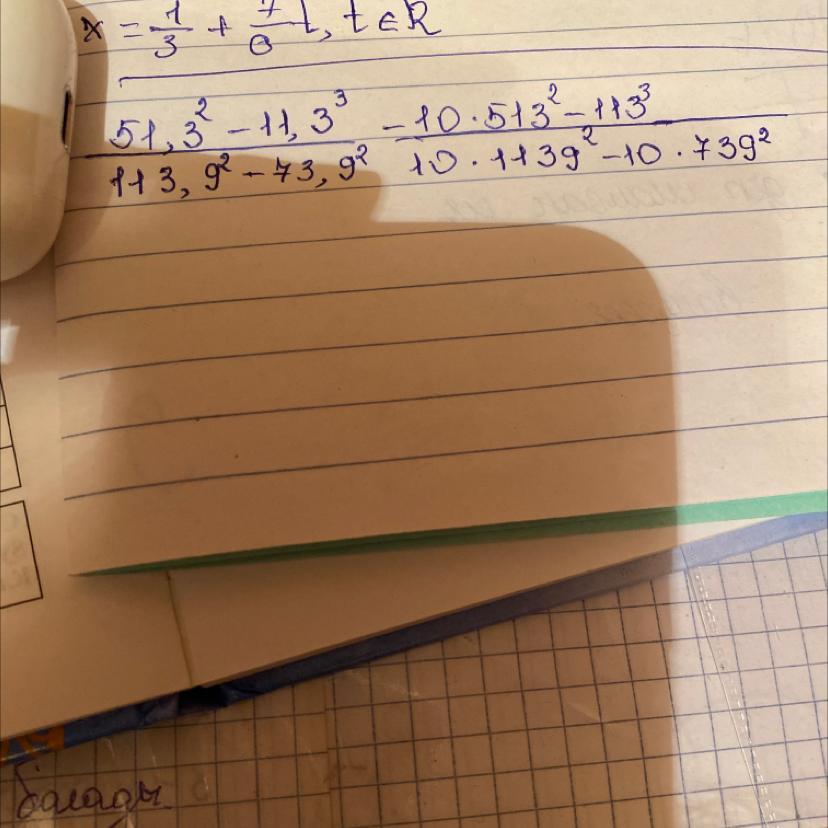 x = 1/3 + 7/6 t, t ∈ R
51,3² - 11,3³ / 113,9² - 73,9² - 10·513² - 113³ / 10·1139² - 10·739²